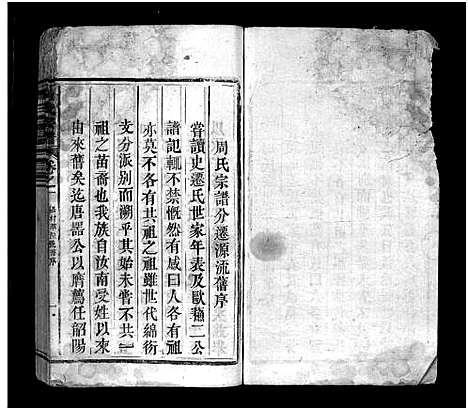 周氏宗譜分遷源流舊序
嘗讀史遷氏世家年表及歐蘇二公
譜記輒不禁慨然有感曰人各有祖
亦莫不各有共祖之祖雖世代綿衍
支分派別而溯乎其始未嘗不共一
祖之苗裔也我族自汝南受姓以來
由來舊矣迄唐諮公以膺薦任韶陽